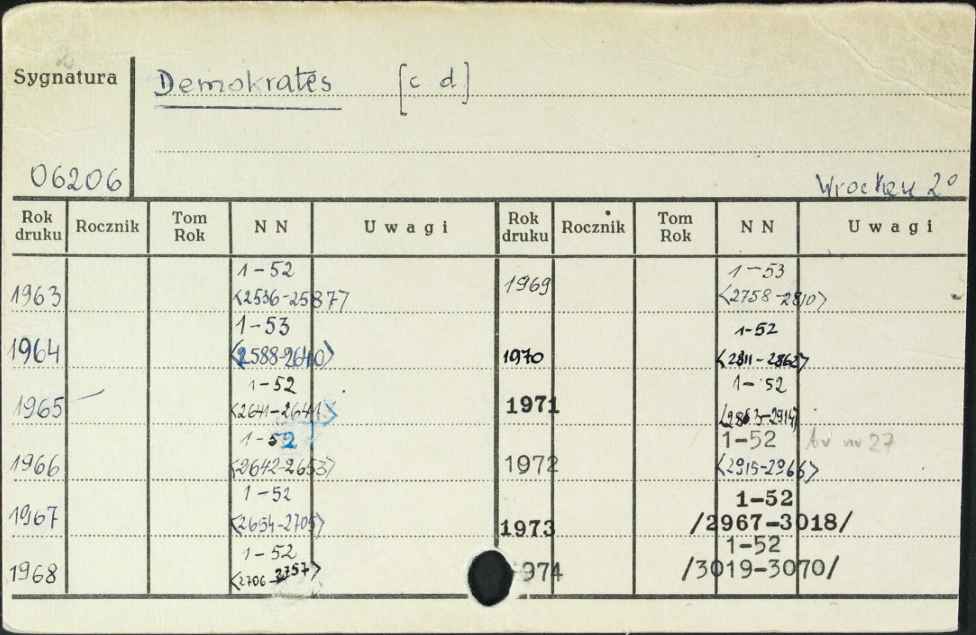 Sygnatura
Demokratės [c d]
06206
Wrocław 2°
Rok druku Rocznik Tom Rok N N Uwagi Rok druku Rocznik Tom Rok N N Uwagi
1963 1-52 <2536-2587>
1964 1-53 <2588-2640>
1965 1-52
1966 1-52 <2642-2653>
1967 1-52 <2654-2705>
1968 1-52 <2706-2757>
1969 1-53 <2758-2810>
1970 1-52 <2811-2862>
1971 1-52 <2863-2914>
1972 1-52 <2915-2966> nr 27
1973 1-52 /2967-3018/
1974 1-52 /3019-3070/